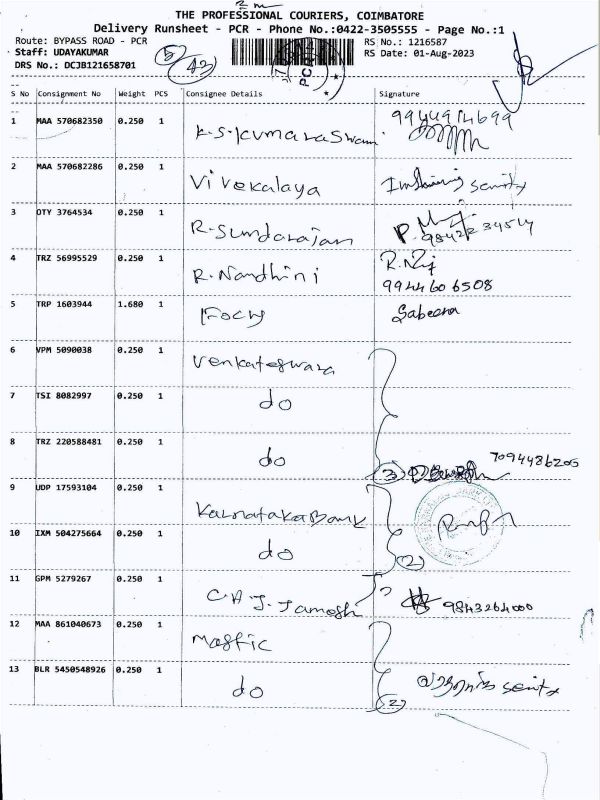 THE PROFESSIONAL COURIERS, COIMBATORE
Delivery Runsheet - PCR - Phone No.:0422-3505555 - Page No.:1
Route: BYPASS ROAD - PCR
RS No.: 1216587
Staff: UDAYAKUMAR
RS Date: 01-Aug-2023
DRS No.: DCJB121658701
S No Consignment No Weight PCS Consignee Details Signature
1 MAA 570682350 0.250 1 K.S.Kumaraswami 9944974699
2 MAA 570682286 0.250 1 Vivekalaya
3 OTY 3764534 0.250 1 R.Sundarajan
4 TRZ 56995529 0.250 1 R.Nandhini
9944606508
5 TRP 1603944 1.680 1 Focus Sabeena
6 VPM 5090038 0.250 1 Venkateswara
7 TSI 8082997 0.250 1 do
8 TRZ 220588481 0.250 1 do 3 7094486205
9 UDP 17593104 0.250 1 Karnataka Bank
10 IXM 504275664 0.250 1 do 2
11 GPM 5279267 0.250 1 C.A.J. 9843264000
12 MAA 861040673 0.250 1
13 BLR 5450548926 0.250 1 do 2